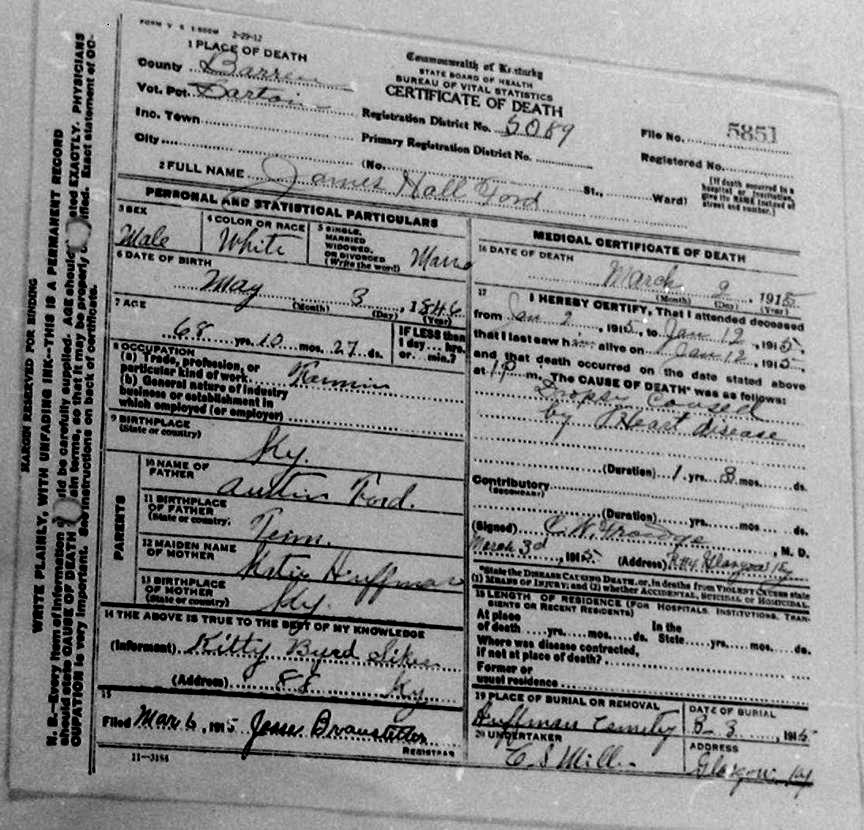 FORM V S 1 500M 2-29-12
1 PLACE OF DEATH
County Barren
Vot. Pct. Barton
Inc. Town
City
Commonwealth of Kentucky
STATE BOARD OF HEALTH
BUREAU OF VITAL STATISTICS
CERTIFICATE OF DEATH
Registration District No. 5089
Primary Registration District No.
File No. 5851
Registered No.
(No. St., Ward)
(If death occurred in a
hospital or institution,
give its NAME instead of
street and number.)
2 FULL NAME James Hall Ford
PERSONAL AND STATISTICAL PARTICULARS
3 SEX
Male
4 COLOR OR RACE
White
5 SINGLE,
MARRIED
WIDOWED,
OR DIVORCED
(Write the word)
6 DATE OF BIRTH
May 3, 1846
(Month) (Day) (Year)
7 AGE
68 yrs. 10 mos. 27 ds.
IF LESS than
1 day... hrs.
or... min.?
8 OCCUPATION
(a) Trade, profession, or
particular kind of work
(b) General nature of industry
business or establishment in
which employed (or employer)
9 BIRTHPLACE
(State or country)
Ky.
PARENTS
10 NAME OF
FATHER
Austin Ford.
11 BIRTHPLACE
OF FATHER
(State or country)
Tenn.
12 MAIDEN NAME
OF MOTHER
Katie Huffman
13 BIRTHPLACE
OF MOTHER
(State or country)
Ky.
14 THE ABOVE IS TRUE TO THE BEST OF MY KNOWLEDGE
(Informant) Kitty Byrd
(Address) 88 Ky
15
Filed Mar 6, 1915 Jesse Branstetter
REGISTRAR
11-3184
MEDICAL CERTIFICATE OF DEATH
16 DATE OF DEATH
March 2, 1915
(Month) (Day) (Year)
17 I HEREBY CERTIFY, That I attended deceased
from Jan 2, 1915, to Jan 12, 1915,
that I last saw him alive on Jan 12, 1915,
and that death occurred on the date stated above
at 1 P m. The CAUSE OF DEATH* was as follows:
Dropsy Caused
by Heart disease
(Duration) 1 yrs. 8 mos. ds.
Contributory
(SECONDARY)
(Duration) yrs. mos. ds.
(Signed) C. W. , M. D.
March 3d, 1915 (Address) Glasgow Ky
*State the DISEASE CAUSING DEATH, or, in deaths from VIOLENT CAUSES state
(1) MEANS OF INJURY; and (2) whether ACCIDENTAL, SUICIDAL OR HOMICIDAL.
18 LENGTH OF RESIDENCE (FOR HOSPITALS, INSTITUTIONS, TRAN-
SIENTS OR RECENT RESIDENTS)
At place
of death yrs. mos. ds.
In the
State yrs. mos. ds.
Where was disease contracted,
if not at place of death?
Former or
usual residence
19 PLACE OF BURIAL OR REMOVAL
Huffman Cemetery
DATE OF BURIAL
3-3, 1915
20 UNDERTAKER
C S Mill
ADDRESS
Glasgow Ky
MARGIN RESERVED FOR BINDING
WRITE PLAINLY, WITH UNFADING INK—THIS IS A PERMANENT RECORD
N. B.—Every item of information should be carefully supplied. AGE should be stated EXACTLY. PHYSICIANS
should state CAUSE OF DEATH in plain terms, so that it may be properly classified. Exact statement of OC-
CUPATION is very important. See instructions on back of certificate.